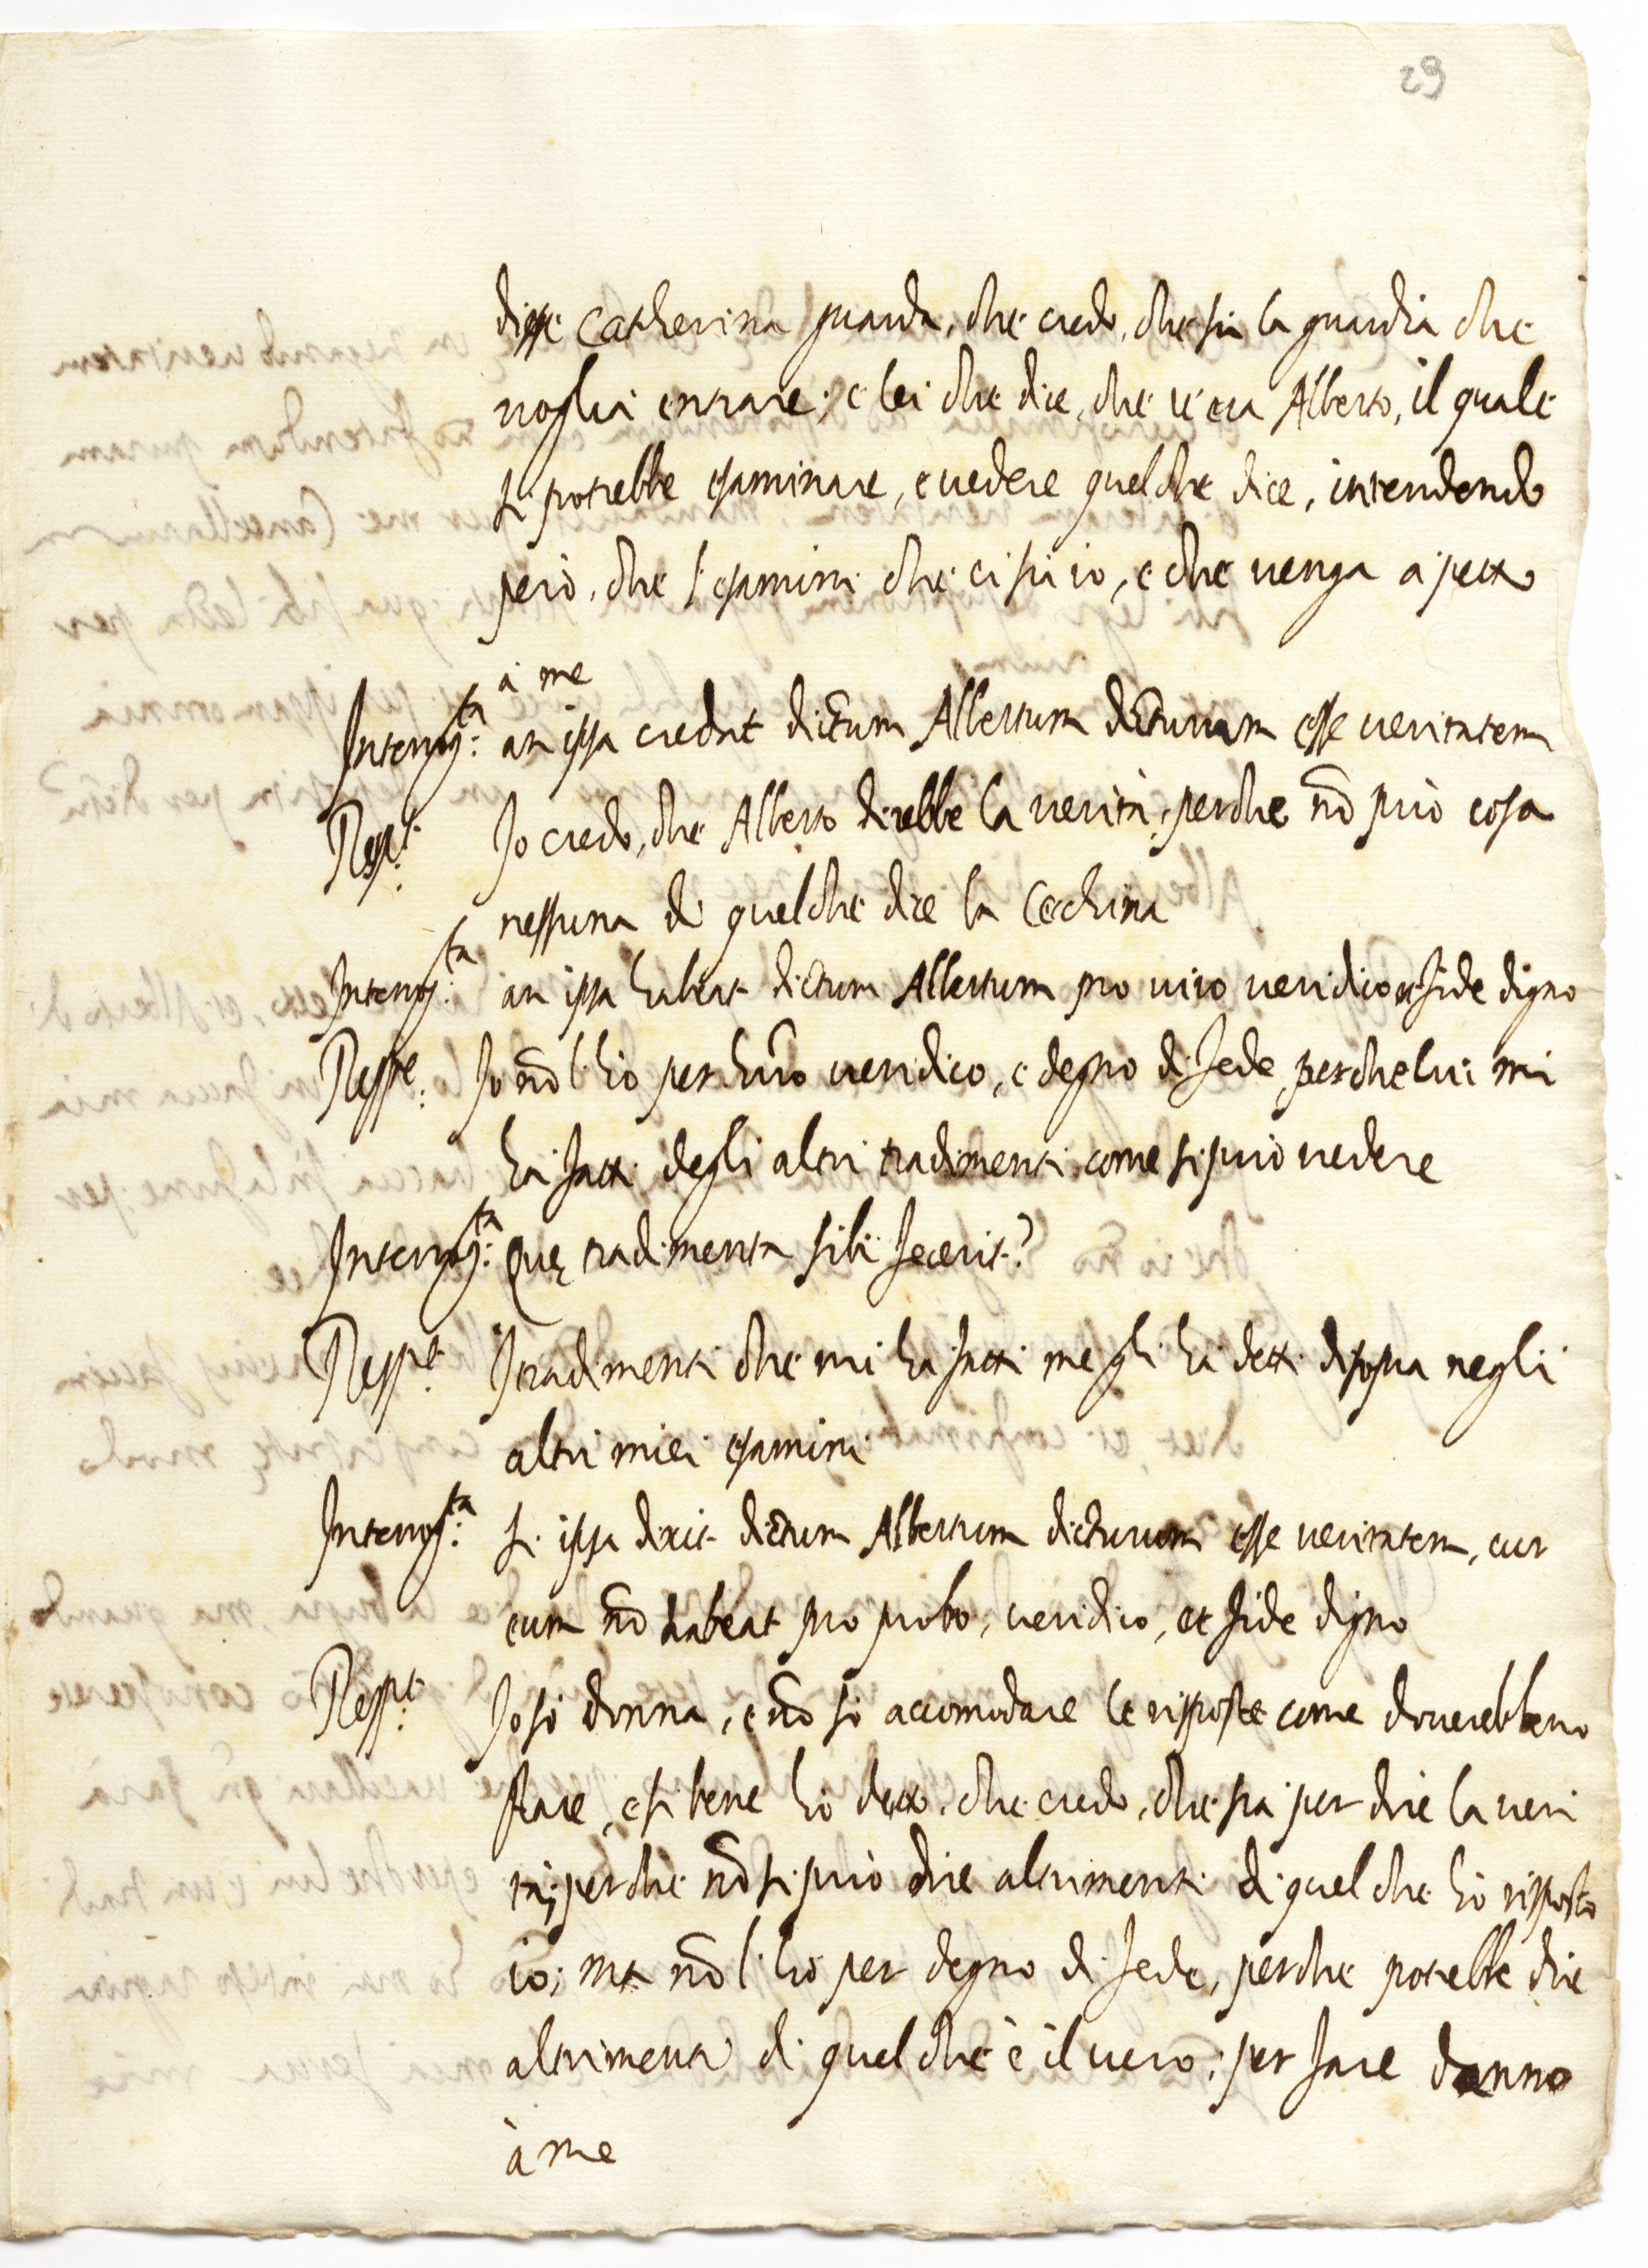 29
disse Catherina guarda, che credo, che sia la guardia che
voglia entrare; e lei che dice, che v'era Alberto, il quale
si potrebbe esaminare, e vedere quel che dice, intendendo
però, che s'esamini che ci sia io, e che venga a petto
à me
Interrog.ta an ipsa credat dictum Albertum dicturum esse veritatem
Resp.t Io credo, che Alberto direbbe la verità, perche nõ può cosa
nessuna di quel che dice la Cechina
Interrog.ta an ipsa habeat dictum Albertum pro viro veridico et fide digno
Resp.t Io nõ l'hò per huõ veridico, e degno di fede, perche lui mi
hà fatti degli altri tradimenti, come si può vedere
Interrog.ta Quę tradimenta sibi fecerit?
Resp.t I tradimenti che mi ha fatti me gli hà detti di sopra negli
altri miei esamini
Interrog.ta si ipsa dixit dictum Albertum dicturum esse veritatem, cur
eum nõ habeat pro probo, veridico, et fide digno
Resp.t Io sò donna, e nõ sò accomodare le risposte come doverebbero
stare, e si bene hò detto, che credo, che sia per dire la veri
tà; perche nõ si può dire altrimenti di quel che hò risposto
io; ma nõ l'hò per degno di fede, perche potrebbe dire
altrimenti di quel che è il vero, per fare danno
à me